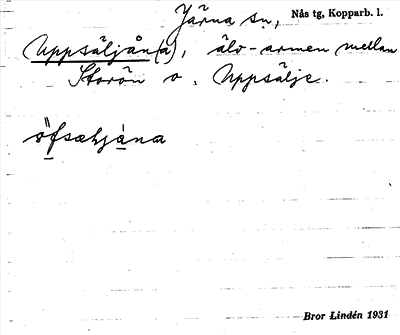 Järna sn, Nås tg, Kopparb. l.
Uppsäljån(a), älv-armen mellan
Storön o. Uppsälje.
öfsæljána
Bror Lindén 1931